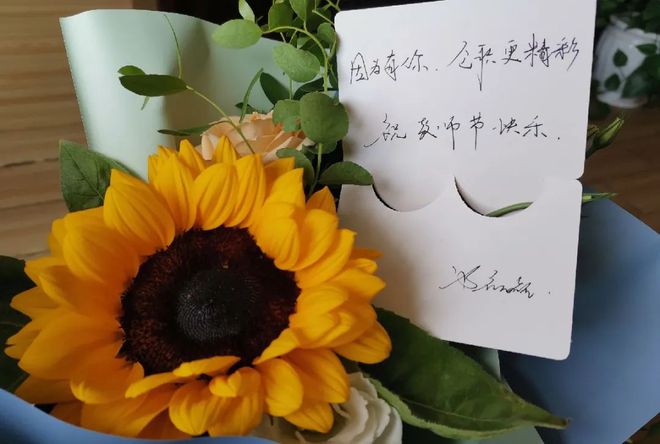 因为有你，仓职更精彩
祝教师节快乐.